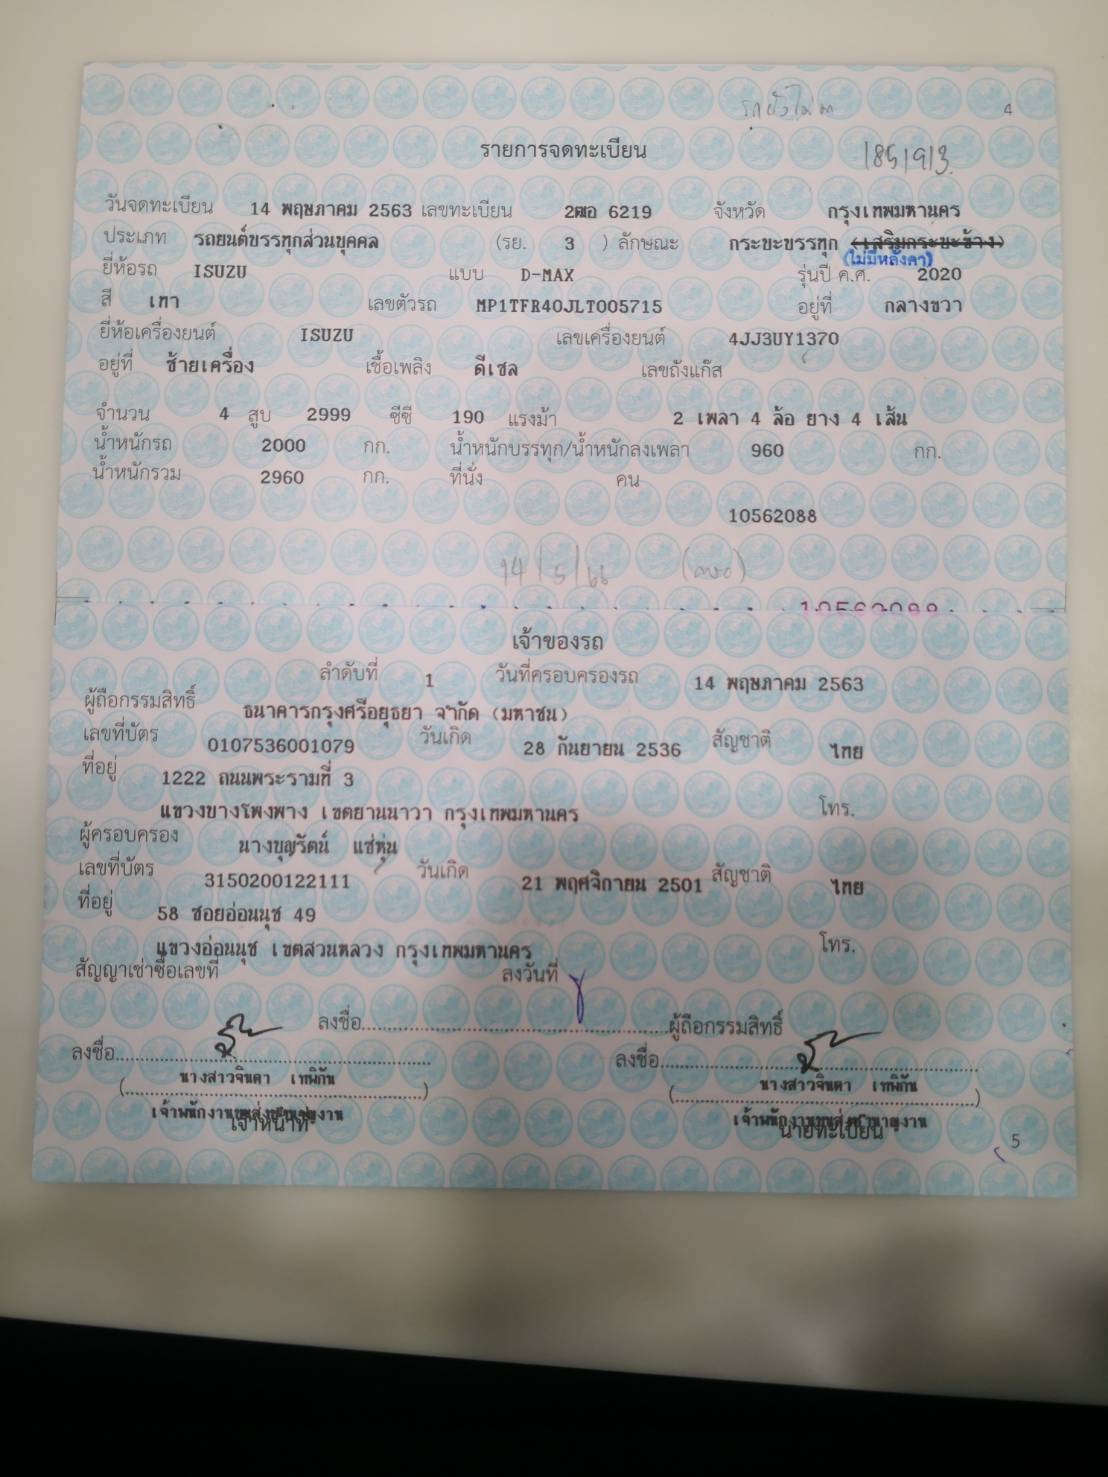 4
รายการจดทะเบียน
185/9/3
วันจดทะเบียน 14 พฤษภาคม 2563 เลขทะเบียน 2ฒอ 6219 จังหวัด กรุงเทพมหานคร
ประเภท รถยนต์บรรทุกส่วนบุคคล (รย. 3 ) ลักษณะ กระบะบรรทุก (เสริมกระบะข้าง)
(ไม่มีหลังคา)
ยี่ห้อรถ ISUZU แบบ D-MAX รุ่นปี ค.ศ. 2020
สี เทา เลขตัวรถ MP1TFR40JLT005715 อยู่ที่ กลางขวา
ยี่ห้อเครื่องยนต์ ISUZU เลขเครื่องยนต์ 4JJ3UY1370
อยู่ที่ ซ้ายเครื่อง เชื้อเพลิง ดีเซล เลขถังแก๊ส
จำนวน 4 สูบ 2999 ซีซี 190 แรงม้า 2 เพลา 4 ล้อ ยาง 4 เส้น
น้ำหนักรถ 2000 กก. น้ำหนักบรรทุก/น้ำหนักลงเพลา 960 กก.
น้ำหนักรวม 2960 กก. ที่นั่ง คน
10562088
14/5/66
10562088
เจ้าของรถ
ลำดับที่ 1 วันที่ครอบครองรถ 14 พฤษภาคม 2563
ผู้ถือกรรมสิทธิ์ ธนาคารกรุงศรีอยุธยา จำกัด (มหาชน)
เลขที่บัตร 0107536001079 วันเกิด 28 กันยายน 2536 สัญชาติ ไทย
ที่อยู่ 1222 ถนนพระรามที่ 3
แขวงบางโพงพาง เขตยานนาวา กรุงเทพมหานคร โทร.
ผู้ครอบครอง นางบุญรัตน์ แซ่หุ่น
เลขที่บัตร 3150200122111 วันเกิด 21 พฤศจิกายน 2501 สัญชาติ ไทย
ที่อยู่ 58 ซอยอ่อนนุช 49
แขวงอ่อนนุช เขตสวนหลวง กรุงเทพมหานคร โทร.
สัญญาเช่าซื้อเลขที่ ลงวันที่
ลงชื่อ..........ผู้ถือกรรมสิทธิ์
ลงชื่อ.......... ลงชื่อ..........
(นางสาวจินดา เทพิกัน) (นางสาวจินดา เทพิกัน)
เจ้าพนักงานขนส่งชำนาญงาน เจ้าพนักงานขนส่งชำนาญงาน
เจ้าหน้าที่ นายทะเบียน
5